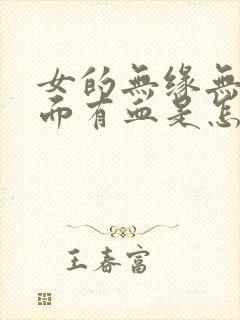 女的無缘無
而有血是怎
王春富